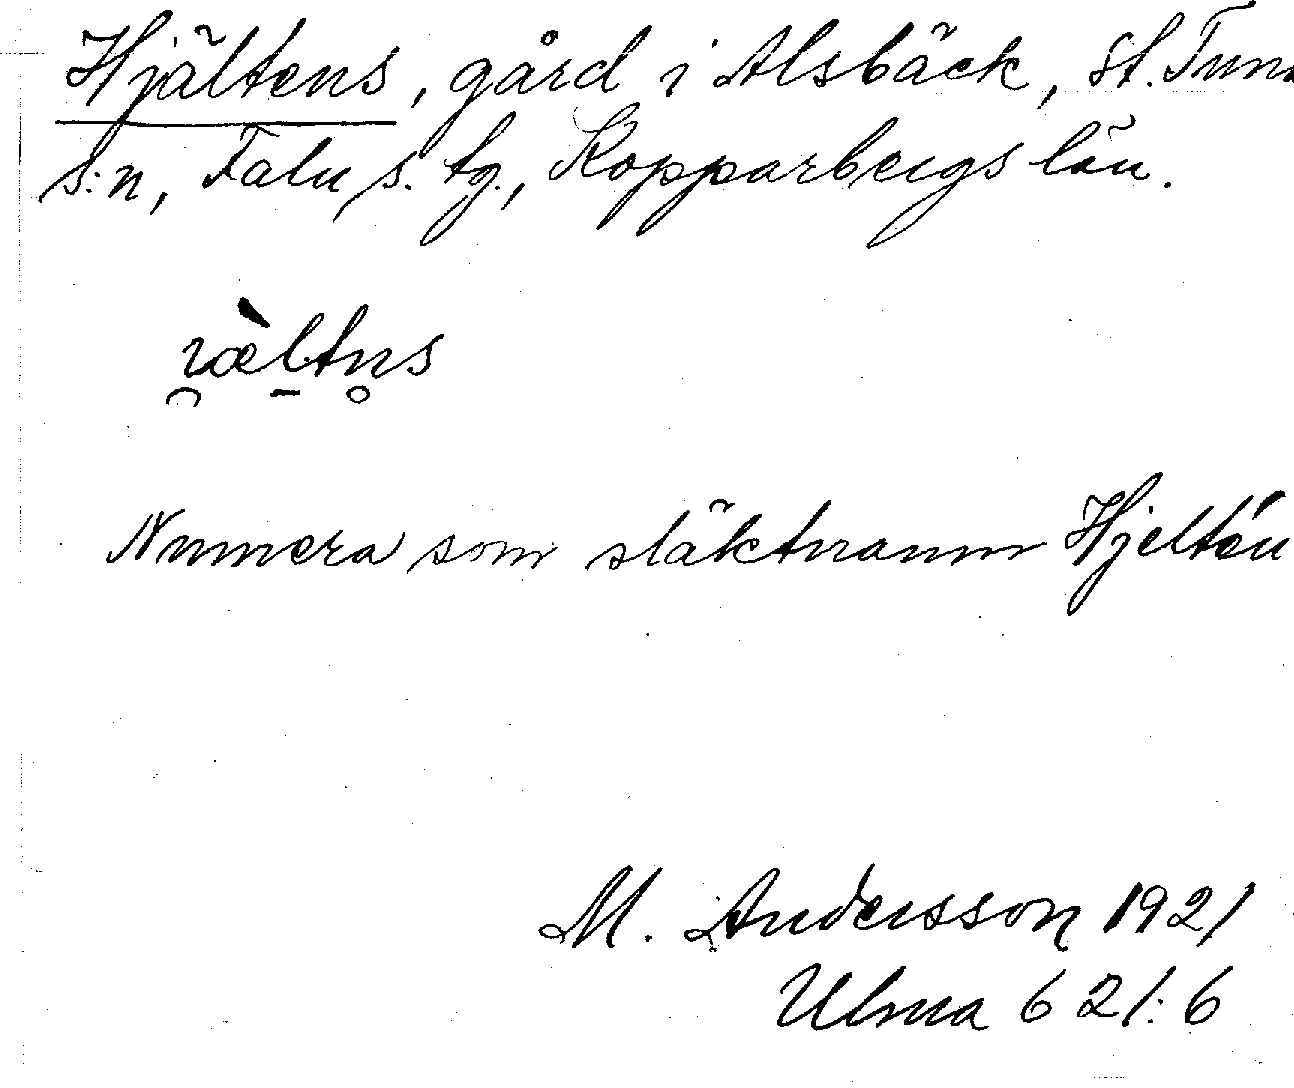 Hjältens, gård i Alsbäck, St. Tuna
s:n, Falu s. tg., Kopparbergs län.
Numera som släktnamn Hjeltén
M. Andersson 1921
Ulma 621:6